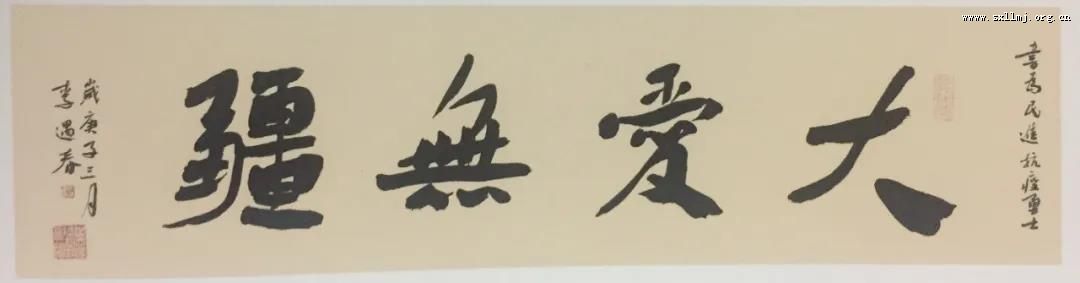 www.sxllmj.org.cn
書為民進抗疫勇士
大愛無疆
歲庚子三月
李遇春